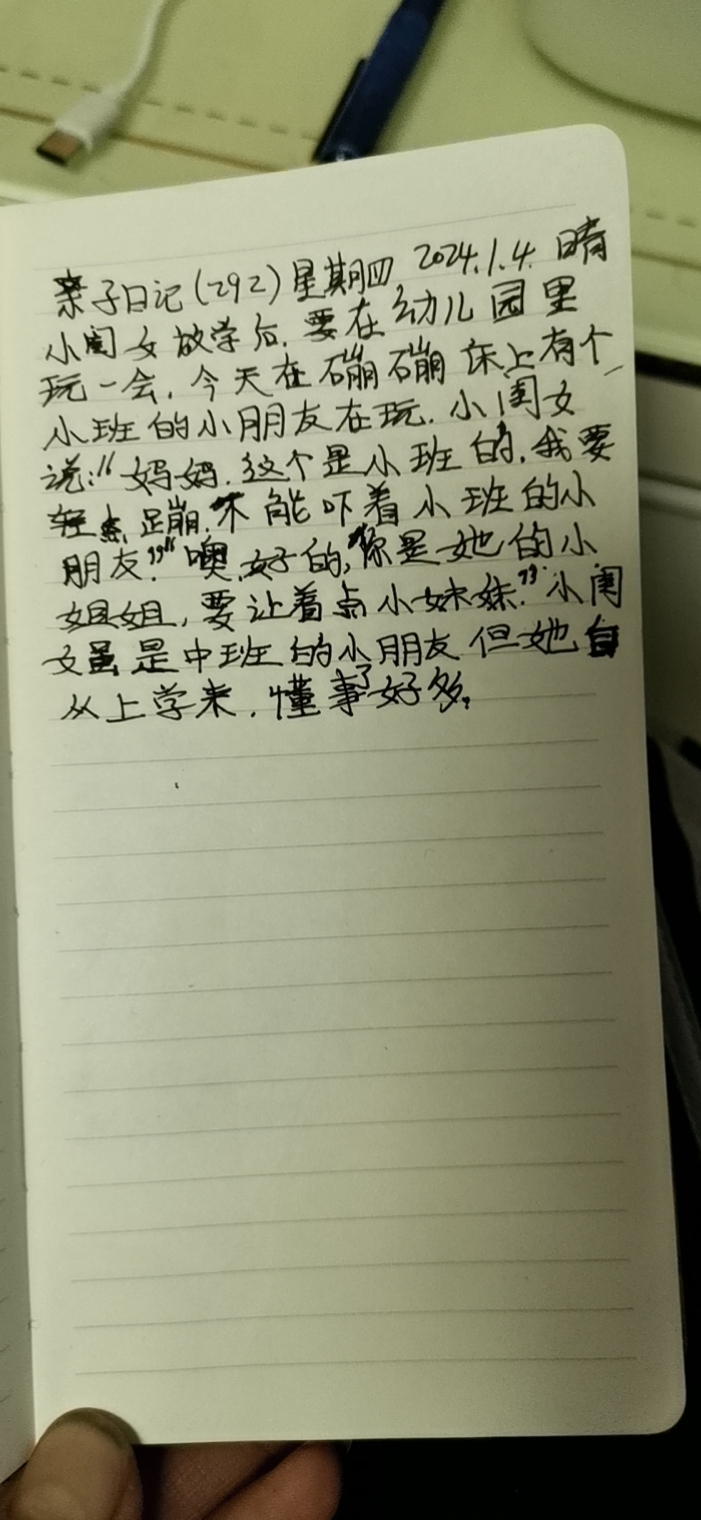 亲子日记(292)星期四 2024.1.4. 晴
小闺女放学后,要在幼儿园里
玩一会,今天在磞磞床上有个
小班的小朋友在玩.小闺女
说:"妈妈.这个是小班的,我要
轻点蹦.不能吓着小班的小
朋友.""噢,好的,你是她的小
姐姐,要让着点小妹妹."小闺
女虽是中班的小朋友但她自
从上学来,懂事了好多。